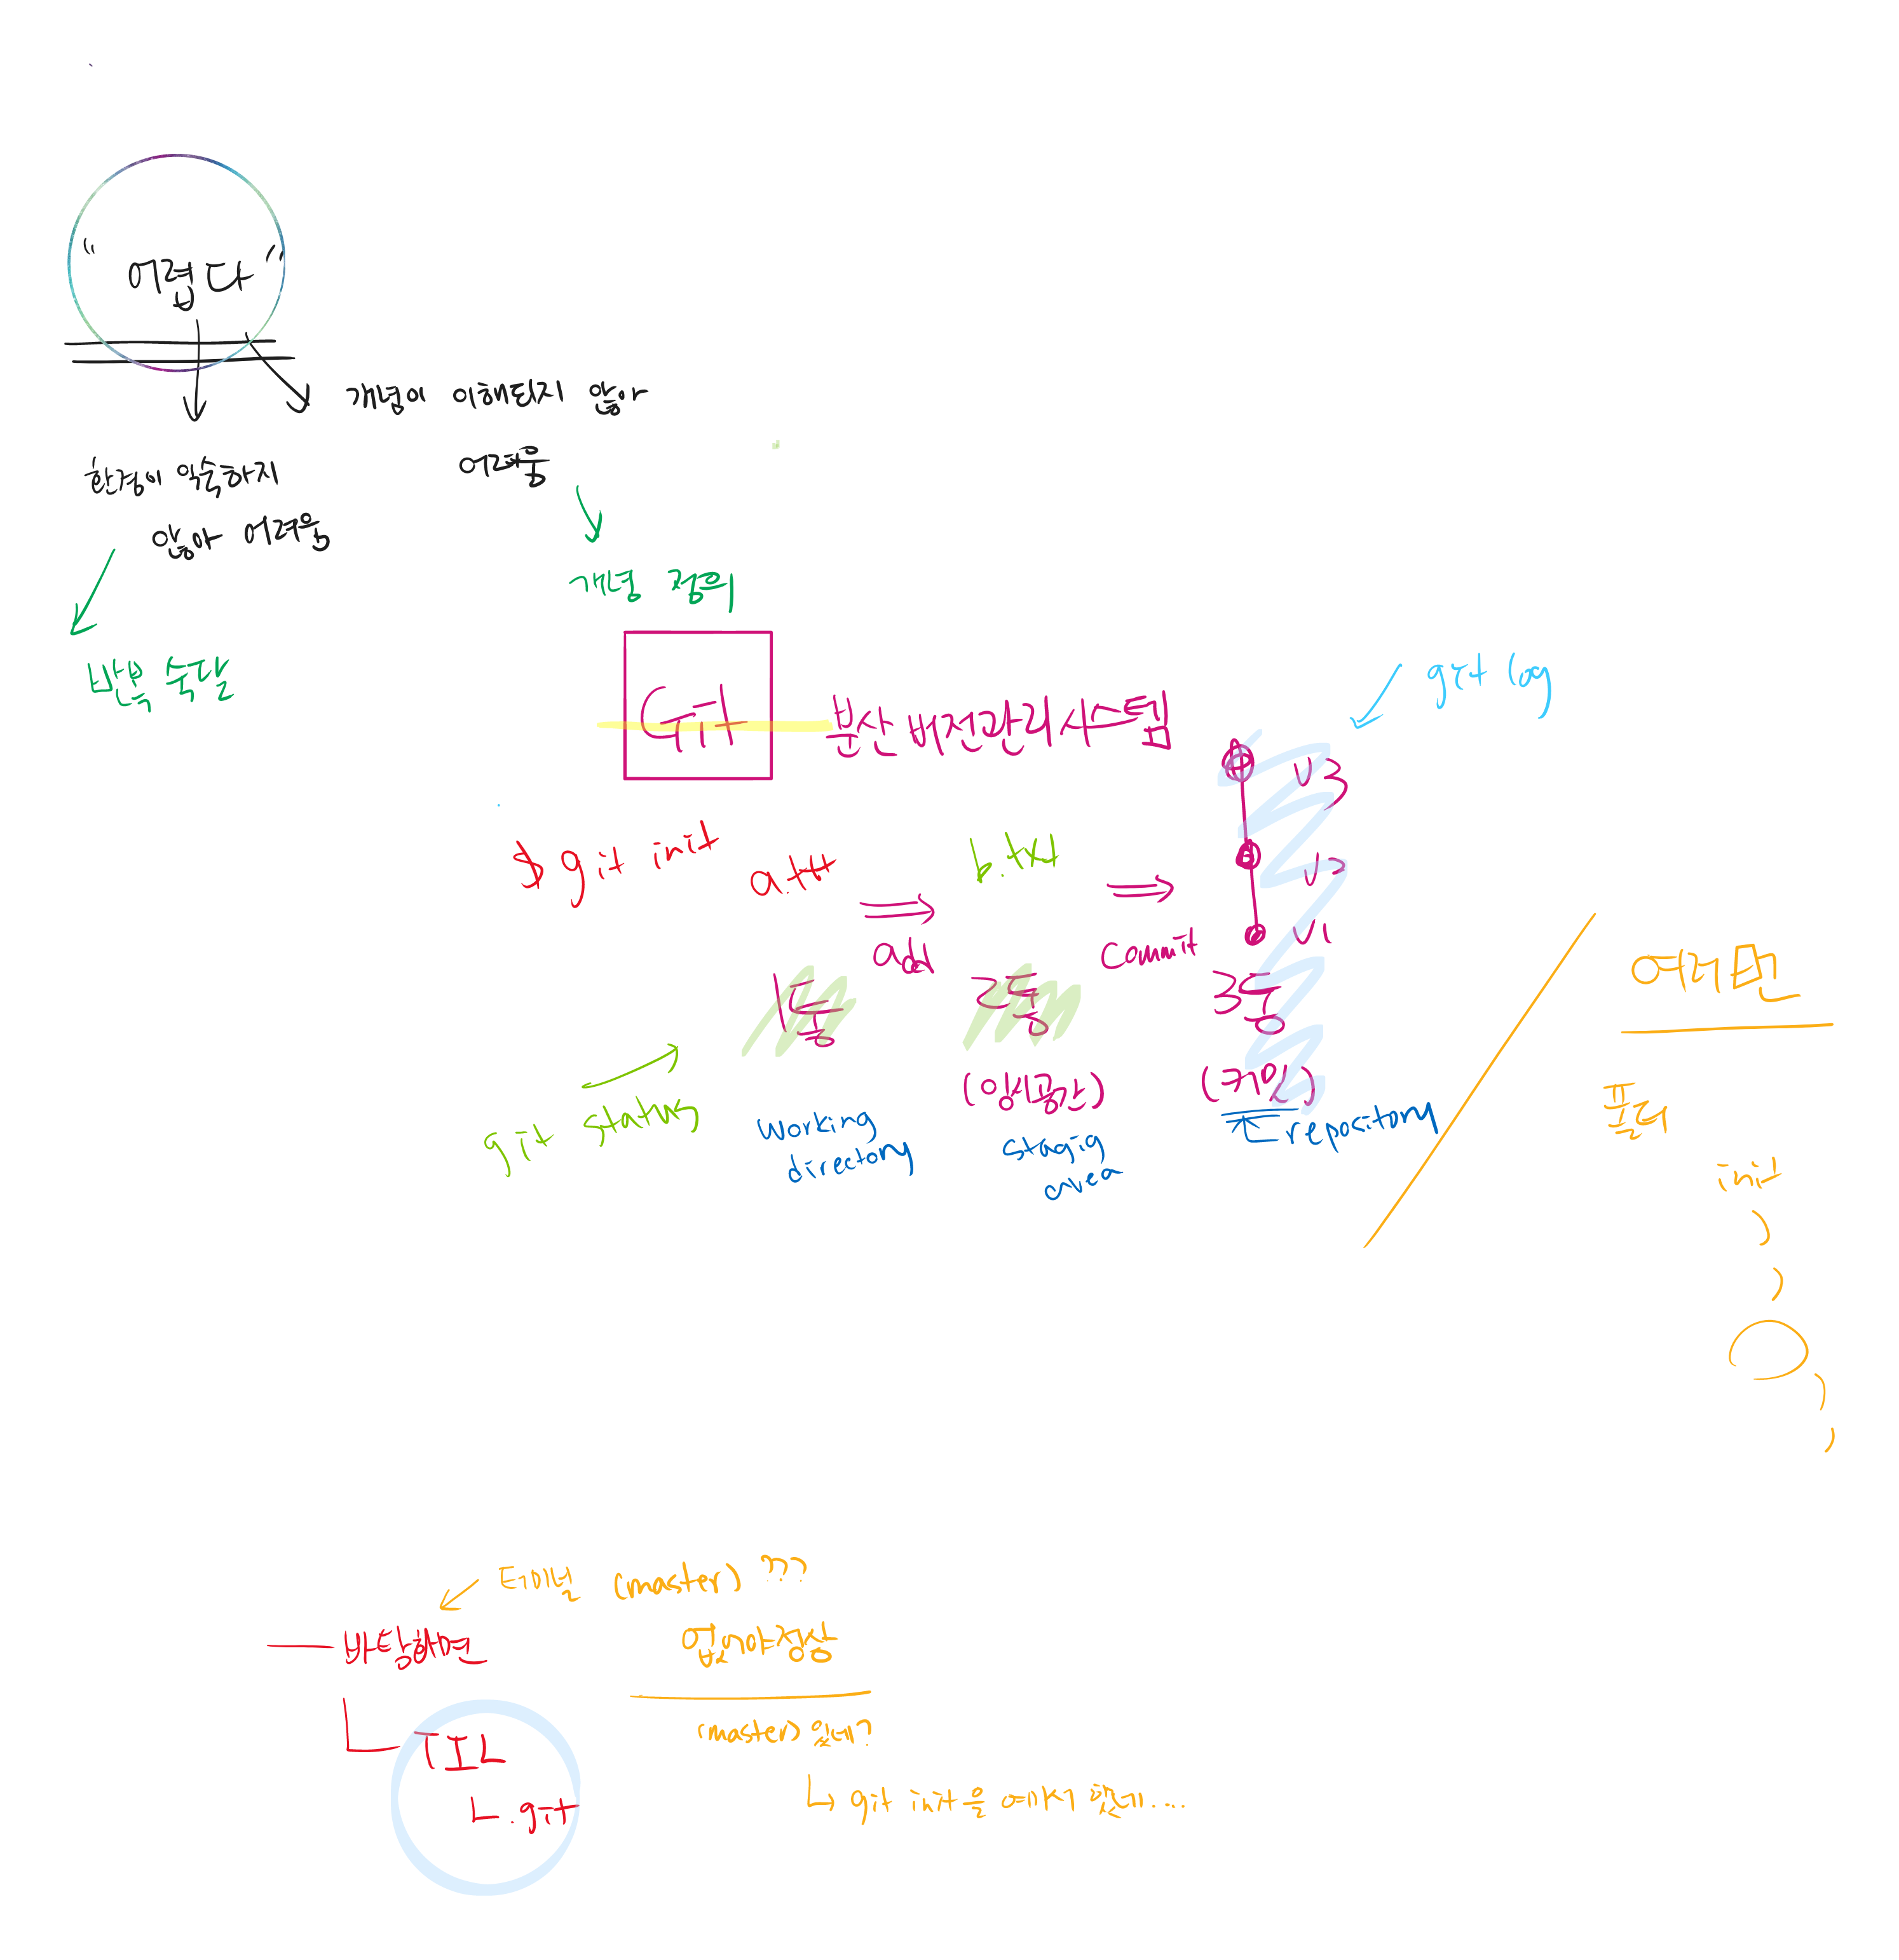 "어렵다"
개념이 이해되지 않아
어려움
환경이 익숙하지
않아 어려움
개념 정의
반복 숙달
Git 분산버전관리시스템
git log
V3
$ git init
a.txt
b.txt
V2
add
commit
V1
1통
2통
3통
(임시공간)
(커밋)
git status
working
directory
staging
area
repository
폴더
init
터미널 (master) ???
바탕화면
없어야 정상
TIL
.git
(master) 있네?
git init을 여기서 했네....